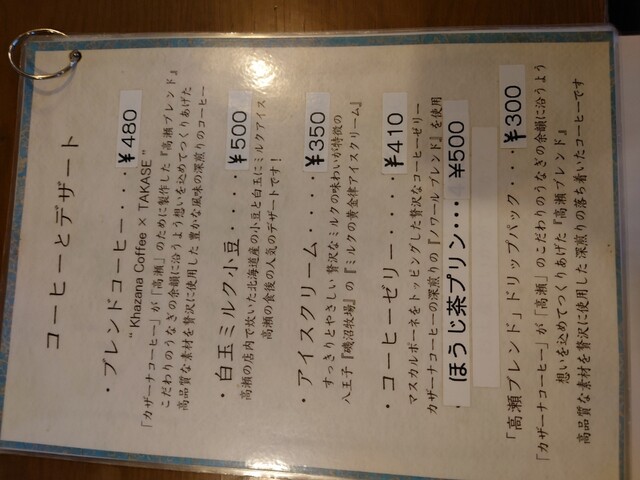 コーヒーとデザート
・ブレンドコーヒー・・・・¥480
" Khazana Coffee × TAKASE "
「カザーナコーヒー」が「高瀬」のために製作した『高瀬ブレンド』
こだわりのうなぎの余韻に沿うよう想いを込めてつくりあげた
高品質な素材を贅沢に使用した豊かな風味の深煎りのコーヒー
・白玉ミルク小豆・・・・¥500
高瀬の店内で炊いた北海道産の小豆と白玉にミルクアイス
高瀬の食後の人気のデザートです！
・アイスクリーム・・・・¥350
すっきりとやさしい贅沢なミルクの味わいが特徴の
八王子『磯沼牧場』の『ミルクの黄金律アイスクリーム』
・コーヒーゼリー・・・・¥410
マスカルポーネをトッピングした贅沢なコーヒーゼリー
カザーナコーヒーの深煎りの『ノワールブレンド』を使用
ほうじ茶プリン・・・¥500
「高瀬ブレンド」ドリップパック・・・¥300
「カザーナコーヒー」が「高瀬」のこだわりのうなぎの余韻に沿うよう
想いを込めてつくりあげた『高瀬ブレンド』
高品質な素材を贅沢に使用した深煎りの落ち着いたコーヒーです